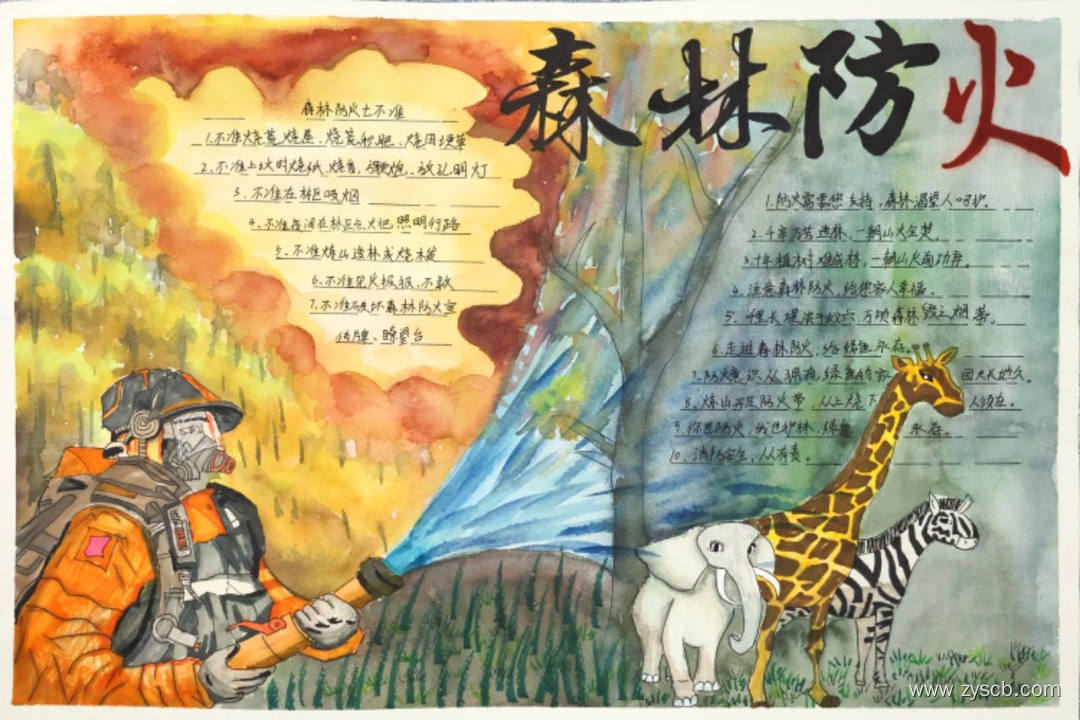 森林防火
森林防火七不准
1.不准烧荒、烧垦、烧荒积肥、烧田埂草
2.不准上坟时烧纸、烧香、放鞭炮、放孔明灯
3.不准在林区吸烟
4.不准夜间在林区点火把照明行路
5.不准炼山造林或烧木炭
6.不准见火报、不救
7.不准破坏森林防火宣
传牌、瞭望台
1.防火需要您支持，森林渴望人呵护。
2.千辛万苦造林，一朝山火全焚。
3.十年植树难成林，一朝山火前功弃。
4.注意森林防火，给您家人幸福。
5.千里长堤溃于蚁穴，万顷森林毁之烟蒂。
6.走进森林防火，给绿色永存。
7.防火意识从拥有，绿色的家园天长地久。
8.炼山开足防火带，从上烧下人须在。
9.你也防火，我也护林，绿色永存。
10.消防安全，人人有责。
www.zyscb.com